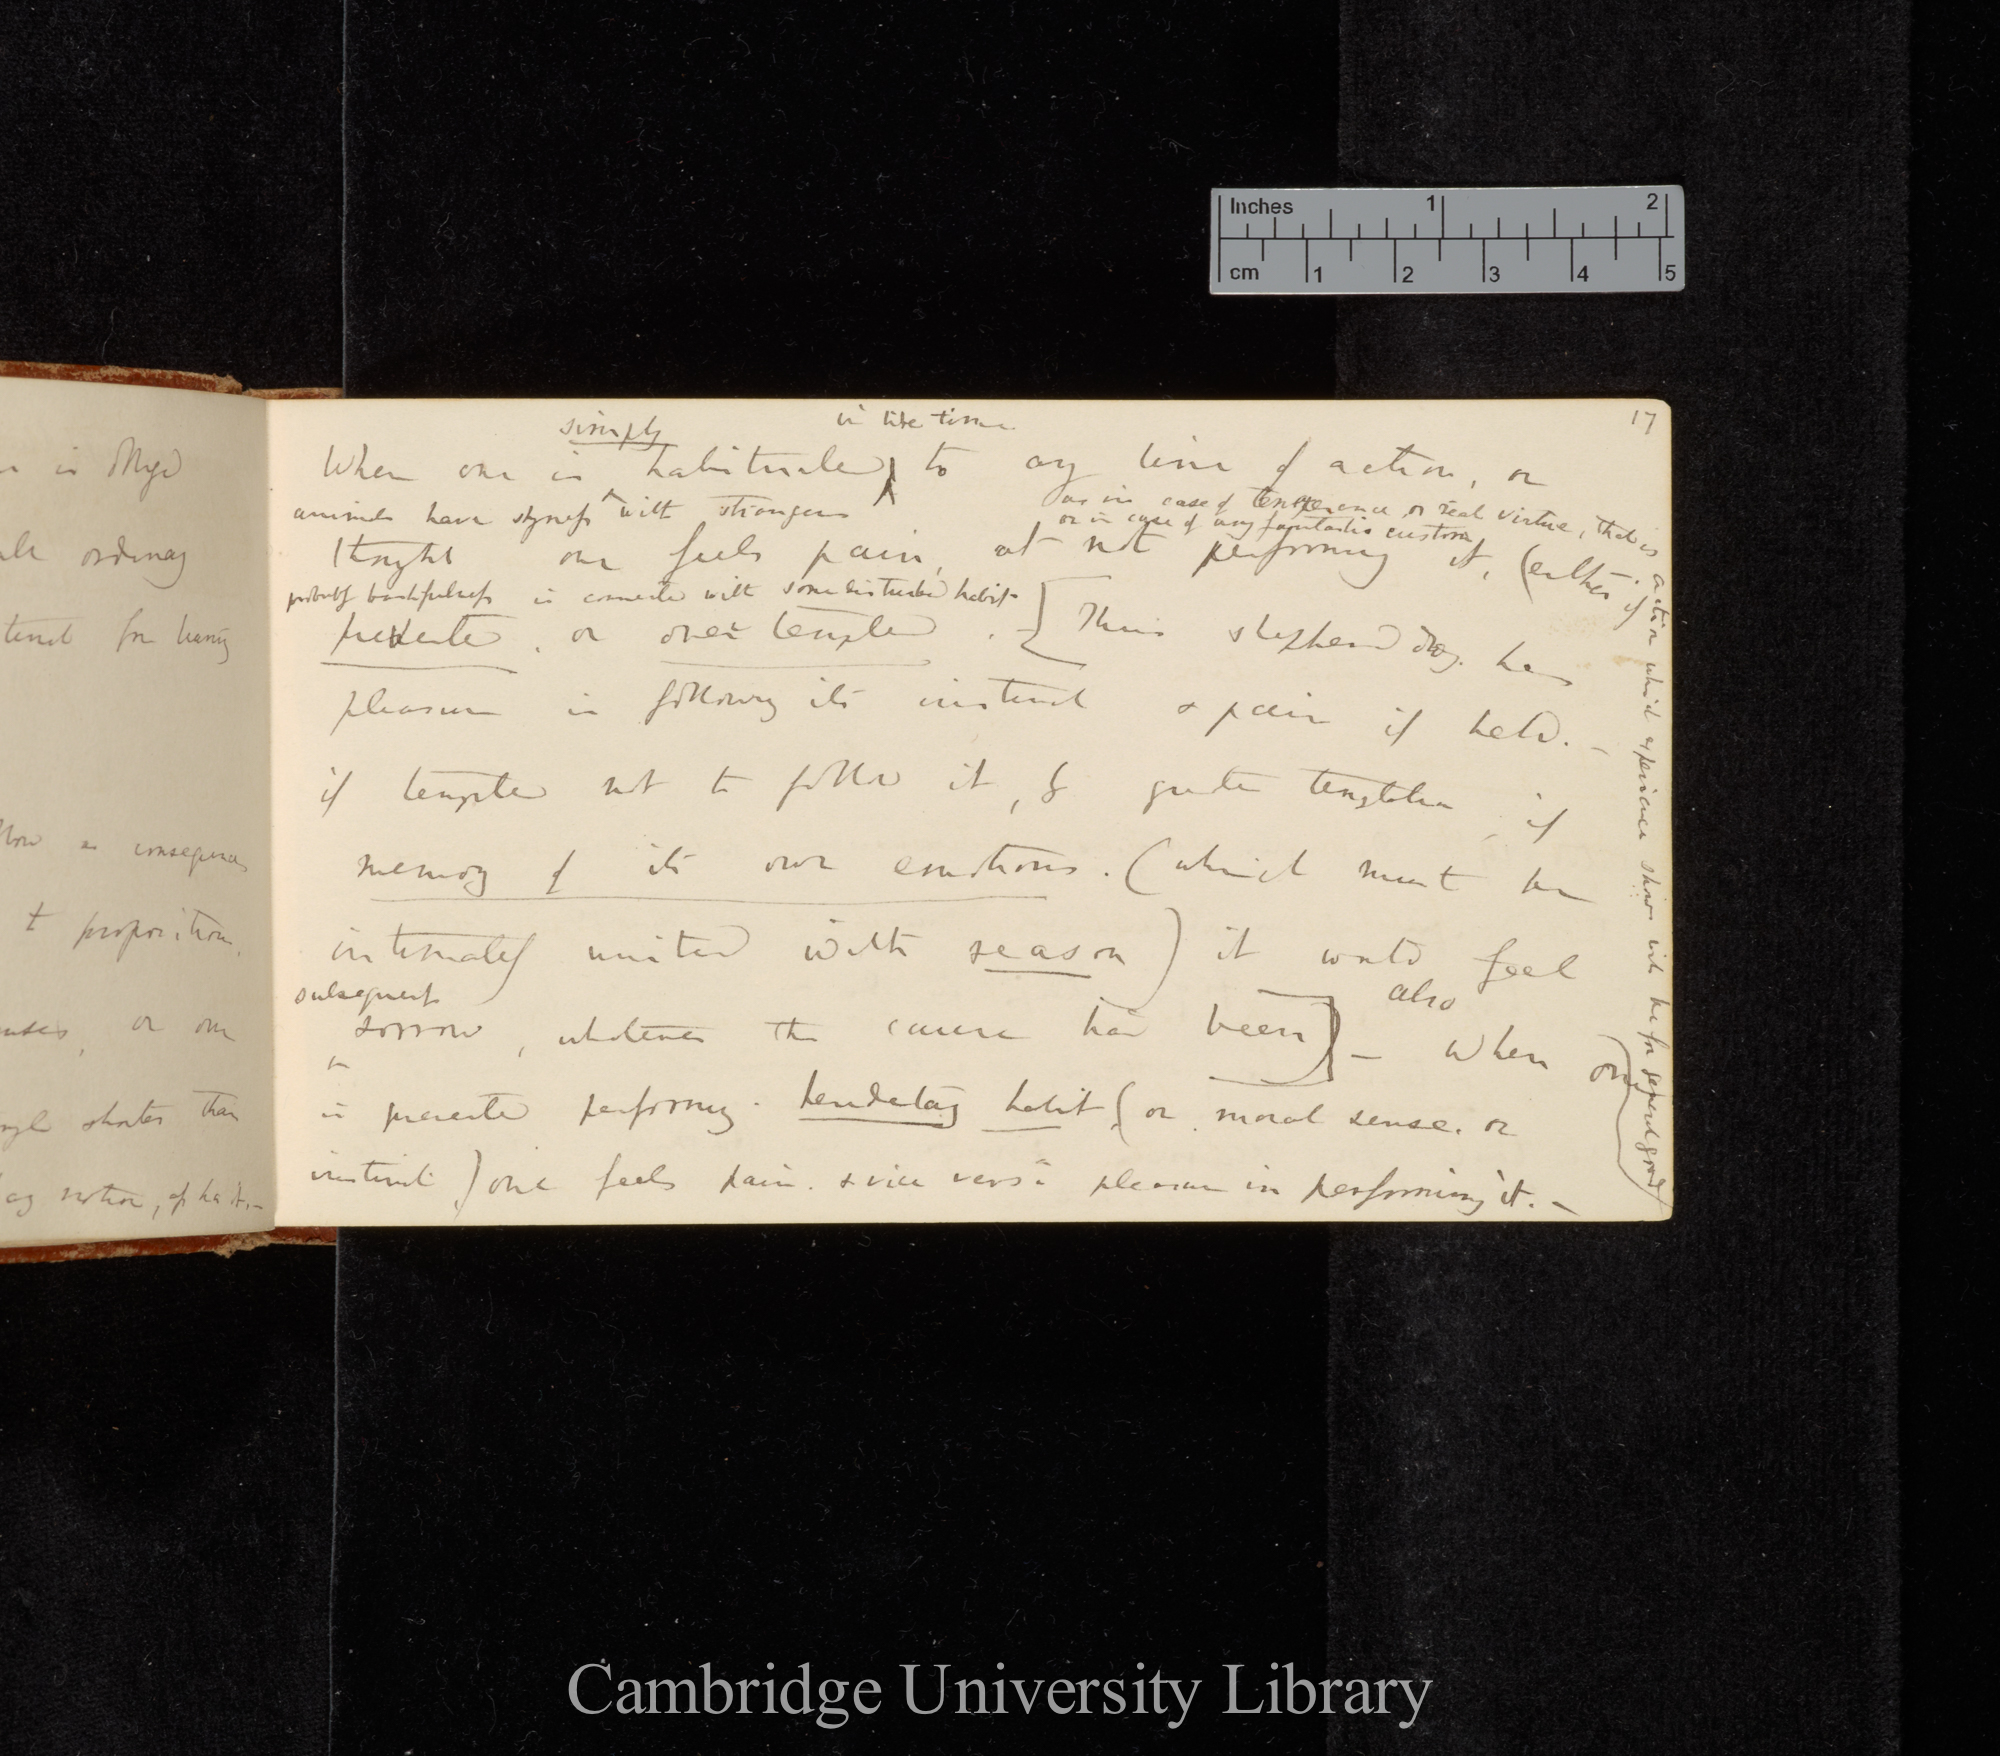 17
simply in life time
When one is habituated to any line of action, or
animals have shyness with strangers
as in case of temperance or real virtue, that is action which experience shows will be for general good
or in case of any fantastic custom
thought one feels pain, at not performing it, (either if
probably bashfulness is connected with some disturbed habit
prevented, or over tempted. — [Thus shepherd dog. has
pleasure in following its instinct & pain if held. —
if tempted not to follow it, by greater temptation, if
memory of its own emotions. (which must be
intimately united with reason) it would feel
subsequent also
sorrow, whatever the cause had been] — When one
is prevented performing hereditary habit, (or moral sense. or
instinct) one feels pain. & vice versâ pleasure in performing it. —
is
ordinary
for having
as consequence
proportion.
or our
shorter than
any notion, of has it. —
Inches 1 2
cm 1 2 3 4 5
Cambridge University Library